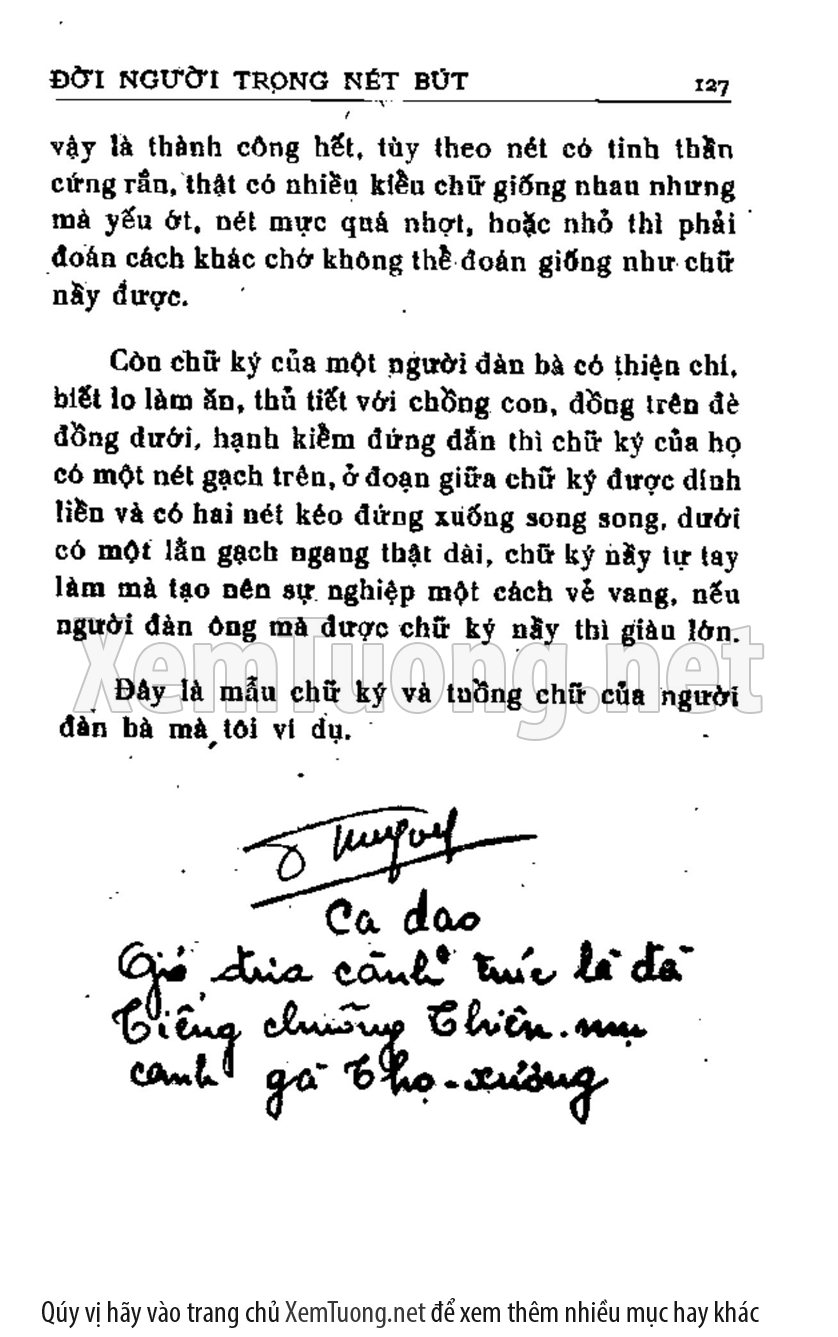 ĐỜI NGƯỜI TRỌNG NÉT BÚT 127
vậy là thành công hết, tùy theo nét có tinh thần
cứng rắn, thật có nhiều kiểu chữ giống nhau nhưng
mà yếu ớt, nét mực quá nhợt, hoặc nhỏ thì phải
đoán cách khác chớ không thể đoán giống như chữ
nầy được.
Còn chữ ký của một người đàn bà có thiện chí,
biết lo làm ăn, thủ tiết với chồng con, đồng trên đè
đồng dưới, hạnh kiểm đứng đắn thì chữ ký của họ
có một nét gạch trên, ở đoạn giữa chữ ký được dính
liền và có hai nét kéo đứng xuống song song, dưới
có một lằn gạch ngang thật dài, chữ ký nầy tự tay
làm mà tạo nên sự nghiệp một cách vẻ vang, nếu
người đàn ông mà được chữ ký nầy thì giàu lớn.
XemTuong.net
Đây là mẫu chữ ký và tuồng chữ của người
đàn bà mà tôi ví dụ.
Ca dao
Gió đưa cành trúc la đà
Tiếng chuông Thiên-mụ
canh gà Thọ-xương
Qúy vị hãy vào trang chủ XemTuong.net để xem thêm nhiều mục hay khác